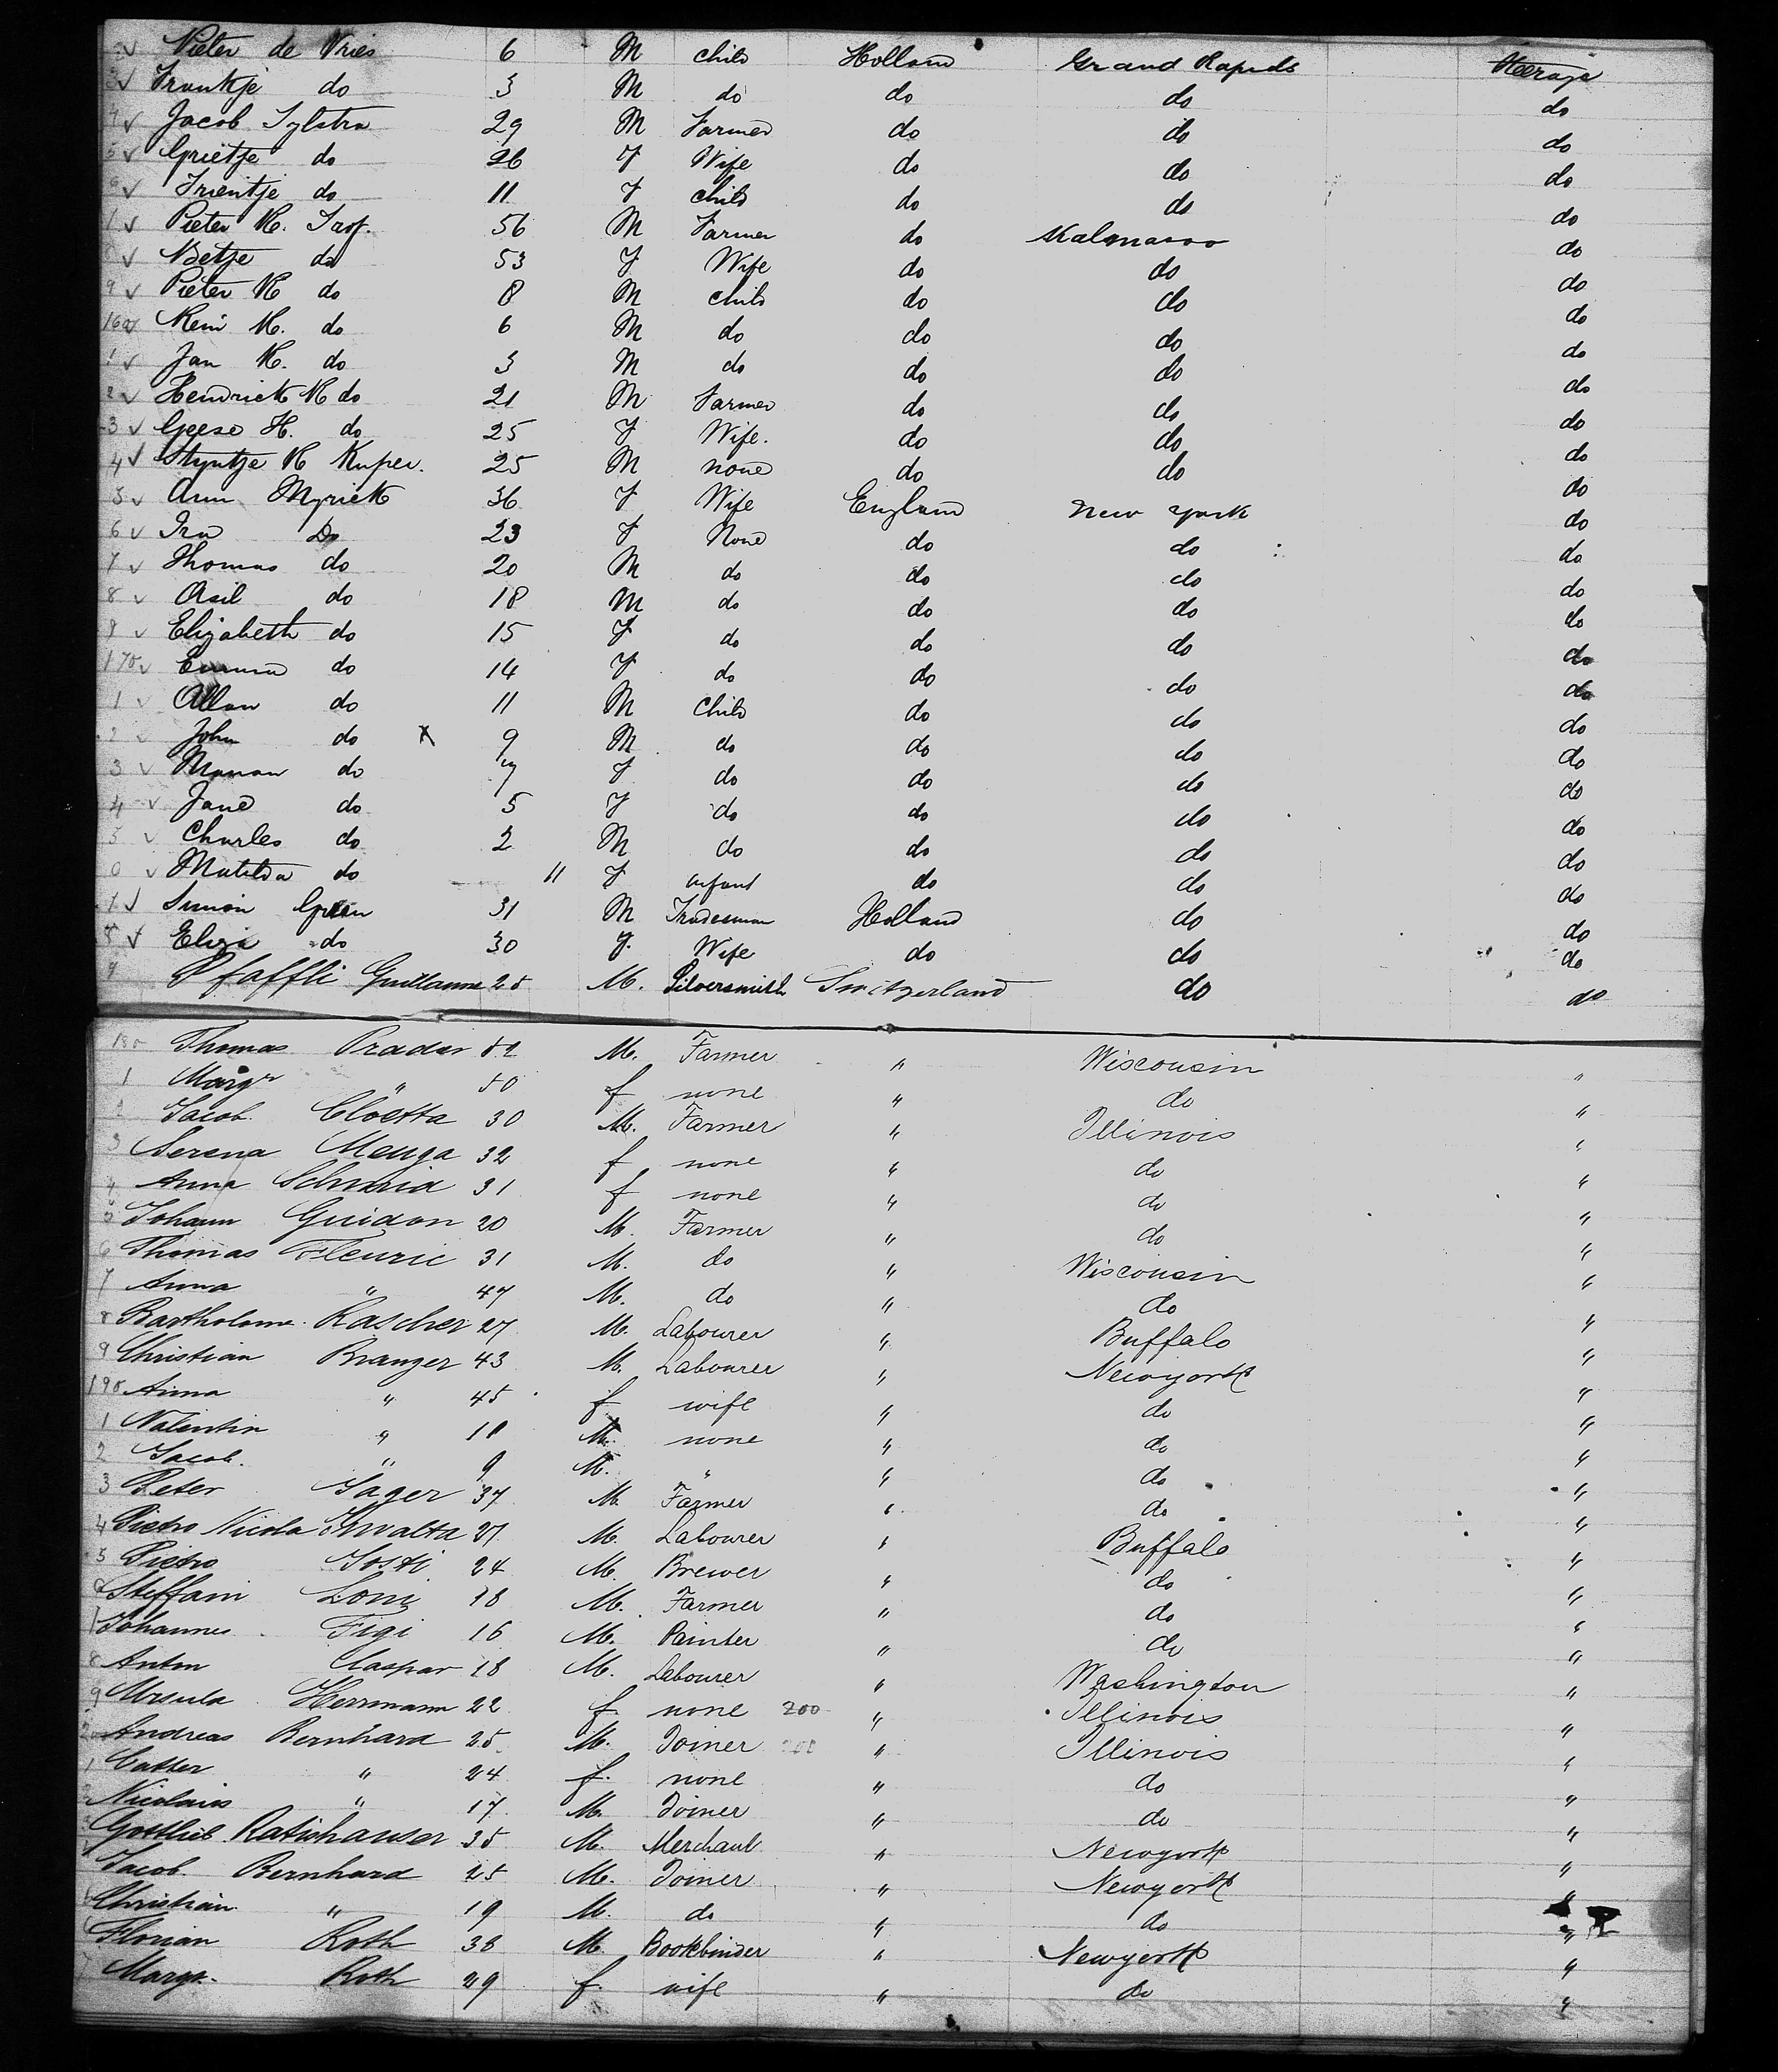 2 ✓ Pieter de Vries 6 M Child Holland Grand Rapids Steerage
3 ✓ Trankje do 3 M do do do do
4 ✓ Jacob Sylstra 29 M Farmer do do do
5 ✓ Grietje do 26 F Wife do do do
6 ✓ Trientje do 11 F Child do do do
7 ✓ Pieter K. Trof. 56 M Farmer do Kalmazoo do
8 ✓ Betje do 53 F Wife do do do
9 ✓ Pieter K do 8 M Child do do do
160 ✓ Rein K. do 6 M do do do do
1 ✓ Jan K. do 3 M do do do do
2 ✓ Hendrick K do 21 M Farmer do do do
3 ✓ Geese H. do 25 F Wife. do do do
4 ✓ Styntje K Kuper. 25 M none do do do
5 ✓ Ann Myrick 36 F Wife England New York do
6 ✓ Ira Do 23 F None do do do
7 ✓ Thomas do 20 M do do do do
8 ✓ Asil do 18 M do do do do
9 ✓ Elizabeth do 15 F do do do do
170 ✓ Emma do 14 F do do do do
1 ✓ Allan do 11 M Child do do do
2 ✓ John do X 9 M do do do do
3 ✓ Marian do 7 F do do do do
4 ✓ Jane do 5 F do do do do
5 ✓ Charles do 2 M do do do do
6 ✓ Matilda do 11 F infant do do do
7 ✓ Simon Green 31 M Tradesman Holland do do
8 ✓ Eliza do 30 F. Wife do do do
9 Pfaffli Guillaume 25 M. Silversmith Switzerland do do
180 Thomas Pradar 52 M. Farmer " Wisconsin "
1 Margr " 50 f none " do "
2 Jacob. Clöetta 30 M. Farmer " Illinois "
3 Serena Menga 32 f none " do "
4 Anna Schmid 31 f none " do "
5 Johann Guidon 20 M. Farmer " do "
6 Thomas Fleuric 31 M. do " Wisconsin "
7 Anna " 47 M. do " do "
8 Bartholome. Rascher 27 M. Labourer " Buffalo "
9 Christian Branger 43 M. Labourer " Newyork "
190 Anna " 45 f wife " do "
1 Valentin " 11 M. none " do "
2 Jacob. " 9 M. " " do "
3 Peter Gager 37 M. Farmer " do "
4 Pietro Nicola 27 M. Labourer " Buffalo "
5 Pietro Josti 24 M. Brewer " do "
6 Steffani Loni 18 M. Farmer " do "
7 Johannes Figi 16 M. Painter " do "
8 Anton Caspar 18 M. Labourer " Washington "
9 Ursula Herrmann 22 f. none 200 " Illinois "
200 Andreas Bernhard 25. M. Joiner " Illinois "
1 Cather " 24 f. none " do "
2 Nicolaus " 17. M. Joiner " do "
3 Gottlieb Ratishauser 35 M. Merchant " Newyork "
4 Jacob. Bernhard 25 M. Joiner " Newyork "
5 Christian " 19 M. do " do "
6 Florian Roth 38 M. Bookbinder " Newyork "
7 Margr. Roth 29 f. wife " do "